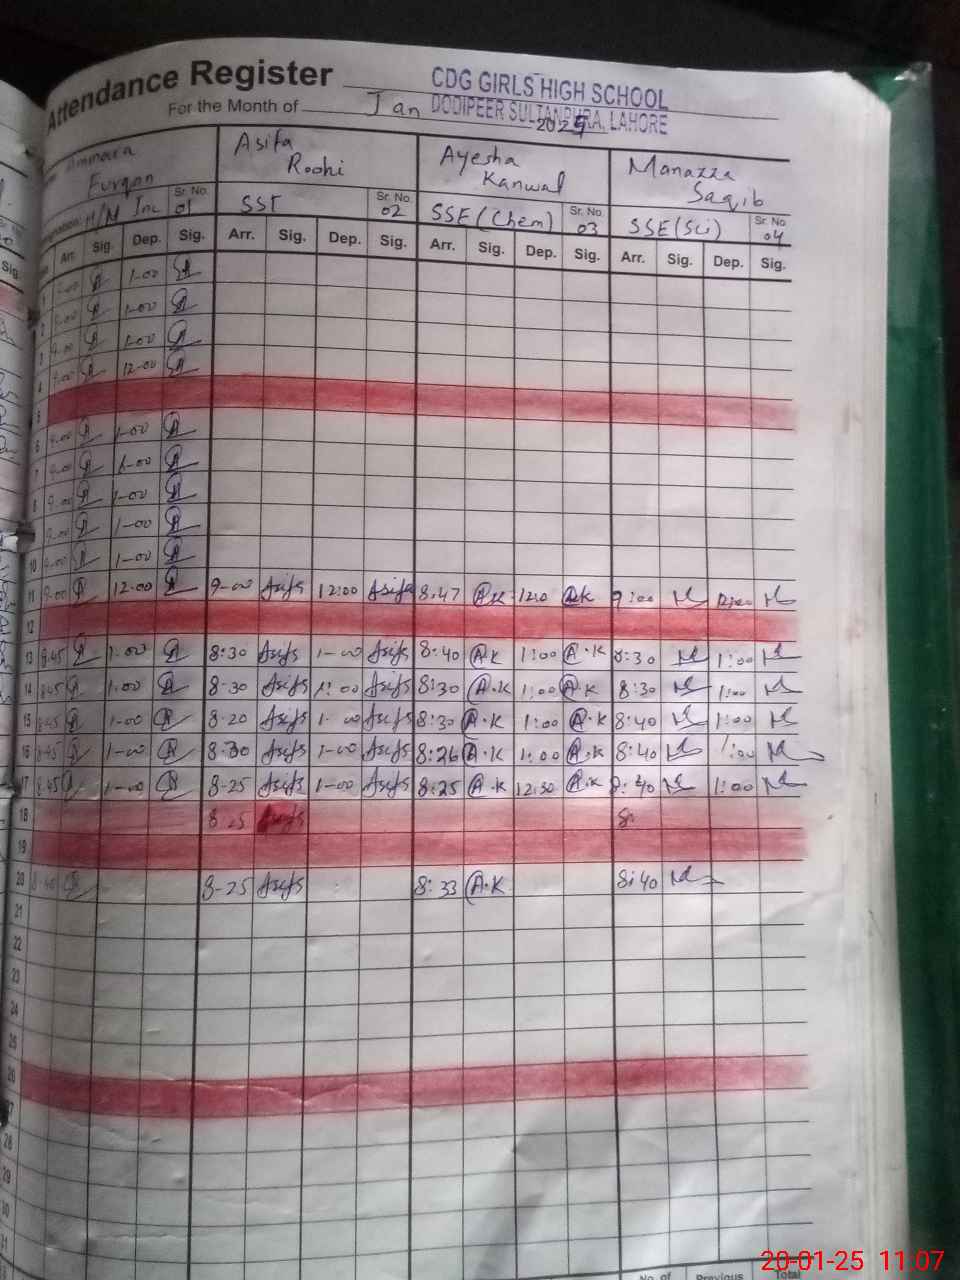 Attendance Register
CDG GIRLS HIGH SCHOOL
For the Month of Jan 2025
DODIPEER SULTANPURA, LAHORE
Furqan
Asifa Roohi
Ayesha Kanwal
Manazza Saqib
H/M Inc Sr. No. 01
SST Sr. No. 02
SSE (Chem) Sr. No. 03
SSE (Sci) Sr. No. 04
Arr. Sig. Dep. Sig. Arr. Sig. Dep. Sig. Arr. Sig. Dep. Sig. Arr. Sig. Dep. Sig.
1 9-00 1-00
2 9-00 1-00
3 9-00 1-00
4 9-00 12-00
5
6 9-00 1-00
7 9-00 1-00
8 9-00 1-00
9-00 1-00
10 9-00 1-00
11 9-00 12-00 9-00 Asifs 12:00 Asifs 8:47 A.K A.K 9:00
12
13 8.45 1-00 8:30 Asifs 1-00 Asifs 8:40 A.K 1:00 A.K 8:30 1:00
14 8.45 1-00 8-30 Asifs 1:00 Asifs 8:30 A.K 1:00 A.K 8:30 1:00
15 8-45 1-00 8-20 Asifs 1-00 Asifs 8:30 A.K 1:00 A.K 8:40 1:00
16 8-45 1-00 8-30 Asifs 1-00 Asifs 8:26 A.K 1:00 A.K 8:40 1:00
17 8.45 1-00 8-25 Asifs 1-00 Asifs 8:25 A.K 12:30 A.K 8:40 1:00
18 8-25 Asifs 8:
19
20 8-40 8-25 Asifs 8:33 A.K 8:40
21
22
23
24
25
26
27
28
29
30
31
No. of Previous Total
20-01-25 11:07